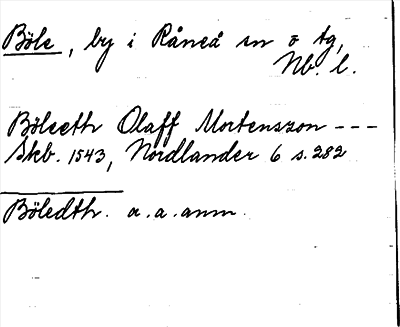 Böle, by i Råneå sn o tg,
Nb. l.
Böleeth Olaff Mortenszon ---
Skb. 1543, Nordlander 6 s. 282
Böledth. a. a. anm.